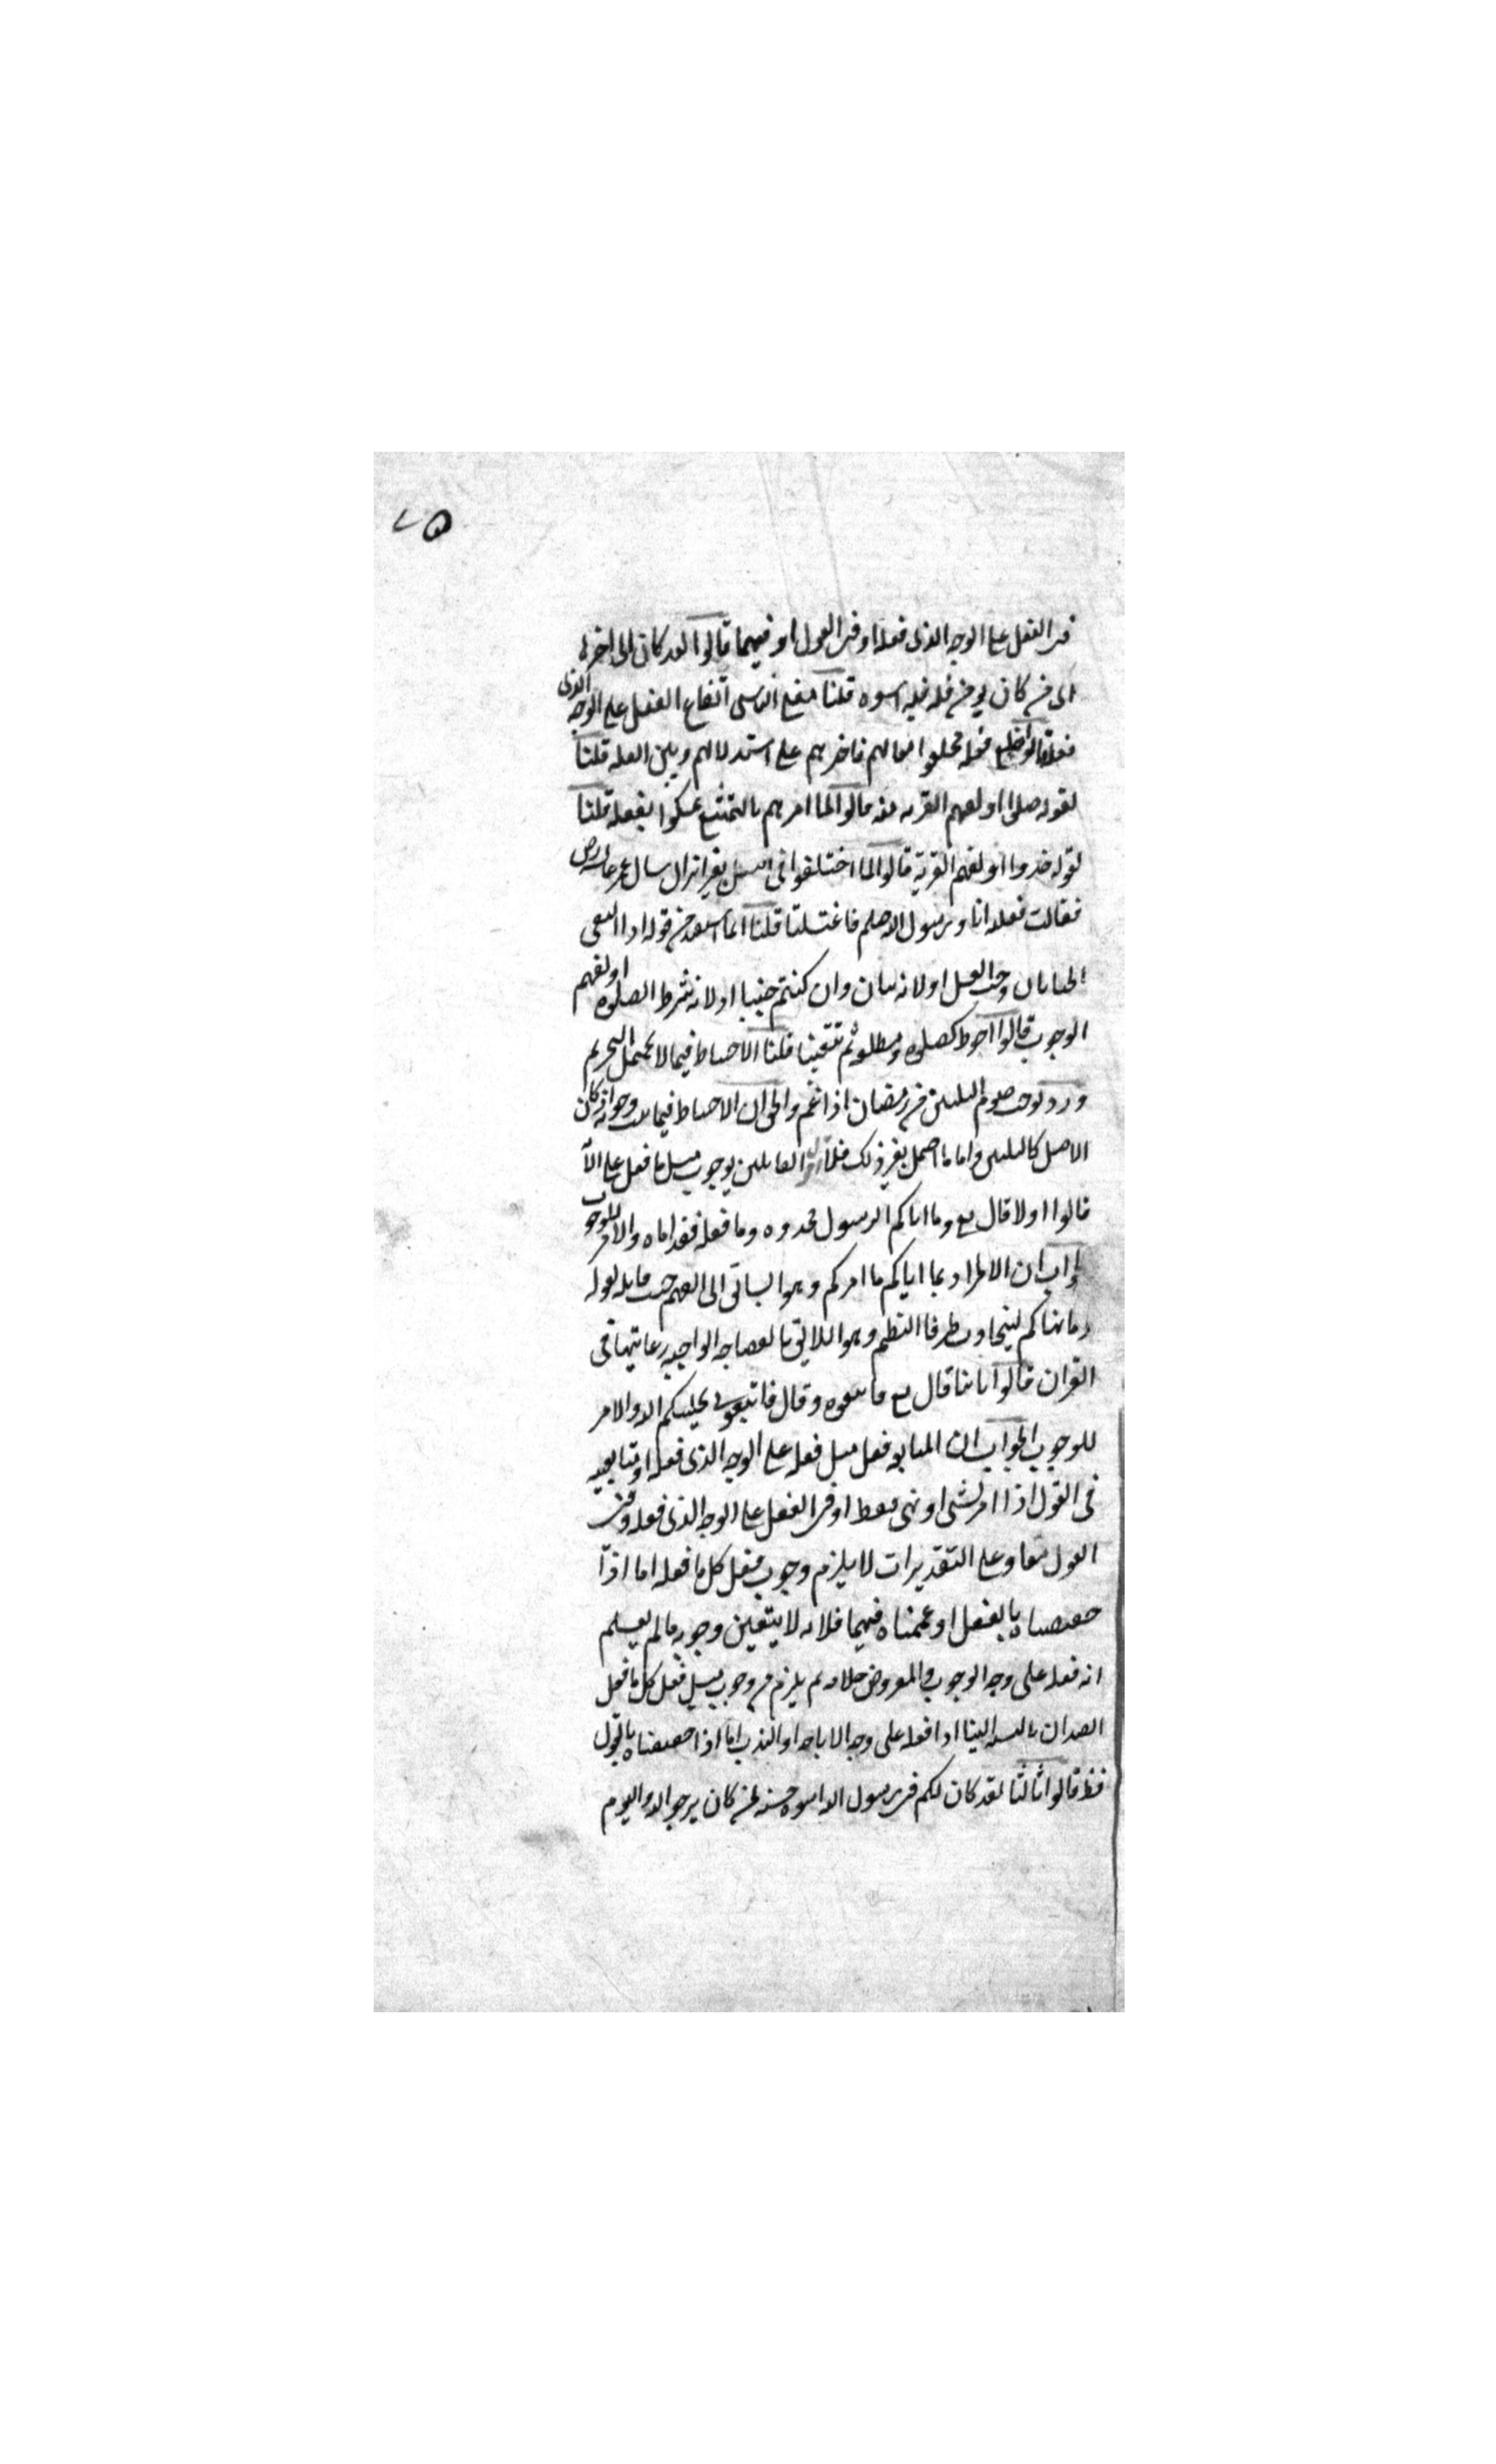 ٧٥
فى الفعل على الوجه الذى فعله او فى القول او فيهما قالوا لقد كان الى اخره
اى من كان يؤمن فله فيه اسوه قلنا معنى التاسى ايقاع الفعل على الوجه الذى
فعله قالوا خلع نعله فخلعوا نعالهم فاخرهم على استدلالهم وبين العله قلنا
لقوله صلوا او لفهم القربه منه قالوا لما امرهم بالتمتع تمسكوا بفعله قلنا
لقوله خذوا او لفهم القربة قالوا لما اختلفوا فى الغسل بغير انزال سال عمر عايشه رض
فقالت فعلته انا ورسول الله صلعم فاغتسلنا قلنا انما استفيد من قوله اذا التقى
الختانان وجب الغسل او لانه بيان وان كنتم جنبا او لانه شرط الصلوه او لفهم
الوجوب قالوا احوط كصلوه ومطلقه لم تتعينا قلنا الاحتياط فيما لا يحتمل التحريم
ورد بوجوب صوم الثلثين من رمضان اذا غم والحق ان الاحتياط فيما ثبت وجوبه او كان
الاصل كالثلثين واما ما احتمل بغير ذلك فلا القائلين بوجوب مثل ما فعل على الا
قالوا اولا قال تع وما اتاكم الرسول فخذوه وما فعله فقد اتاه والامر للوجوب
ان المراد بما اتاكم ما امركم وهو السابق الى الفهم حيث قابله بقوله
وما نهاكم ليتجاوب طرفا النظم وهو اللايق بالفصاحه الواجبه رعايتها فى
القران قالوا ثانيا قال تع فاتبعوه وقال فاتبعونى يحببكم الله والامر
للوجوب الجواب ان المتابعه فعل مثل فعله على الوجه الذى فعله او متابعته
فى القول اذا امر بشى او نهى فقط او فى الفعل على الوجه الذى فعله وفى
القول معا وعلى التقديرات لا يلزم وجوب فعل كل ما فعله اما اذا
خصصناه بالفعل او عممناه فيهما فلانه لا يتعين وجوبه مالم يعلم
انه فعله على وجه الوجوب والمعروض خلافه لم يلزم من وجوب مثل فعل كل ما فعل
الصدان بالنسبه الينا اذا فعله على وجه الاباحه او الندب اما اذا خصصناه بالقول
فظ قالوا ثالثا لقد كان لكم فى رسول الله اسوه حسنه لمن كان يرجو الله واليوم